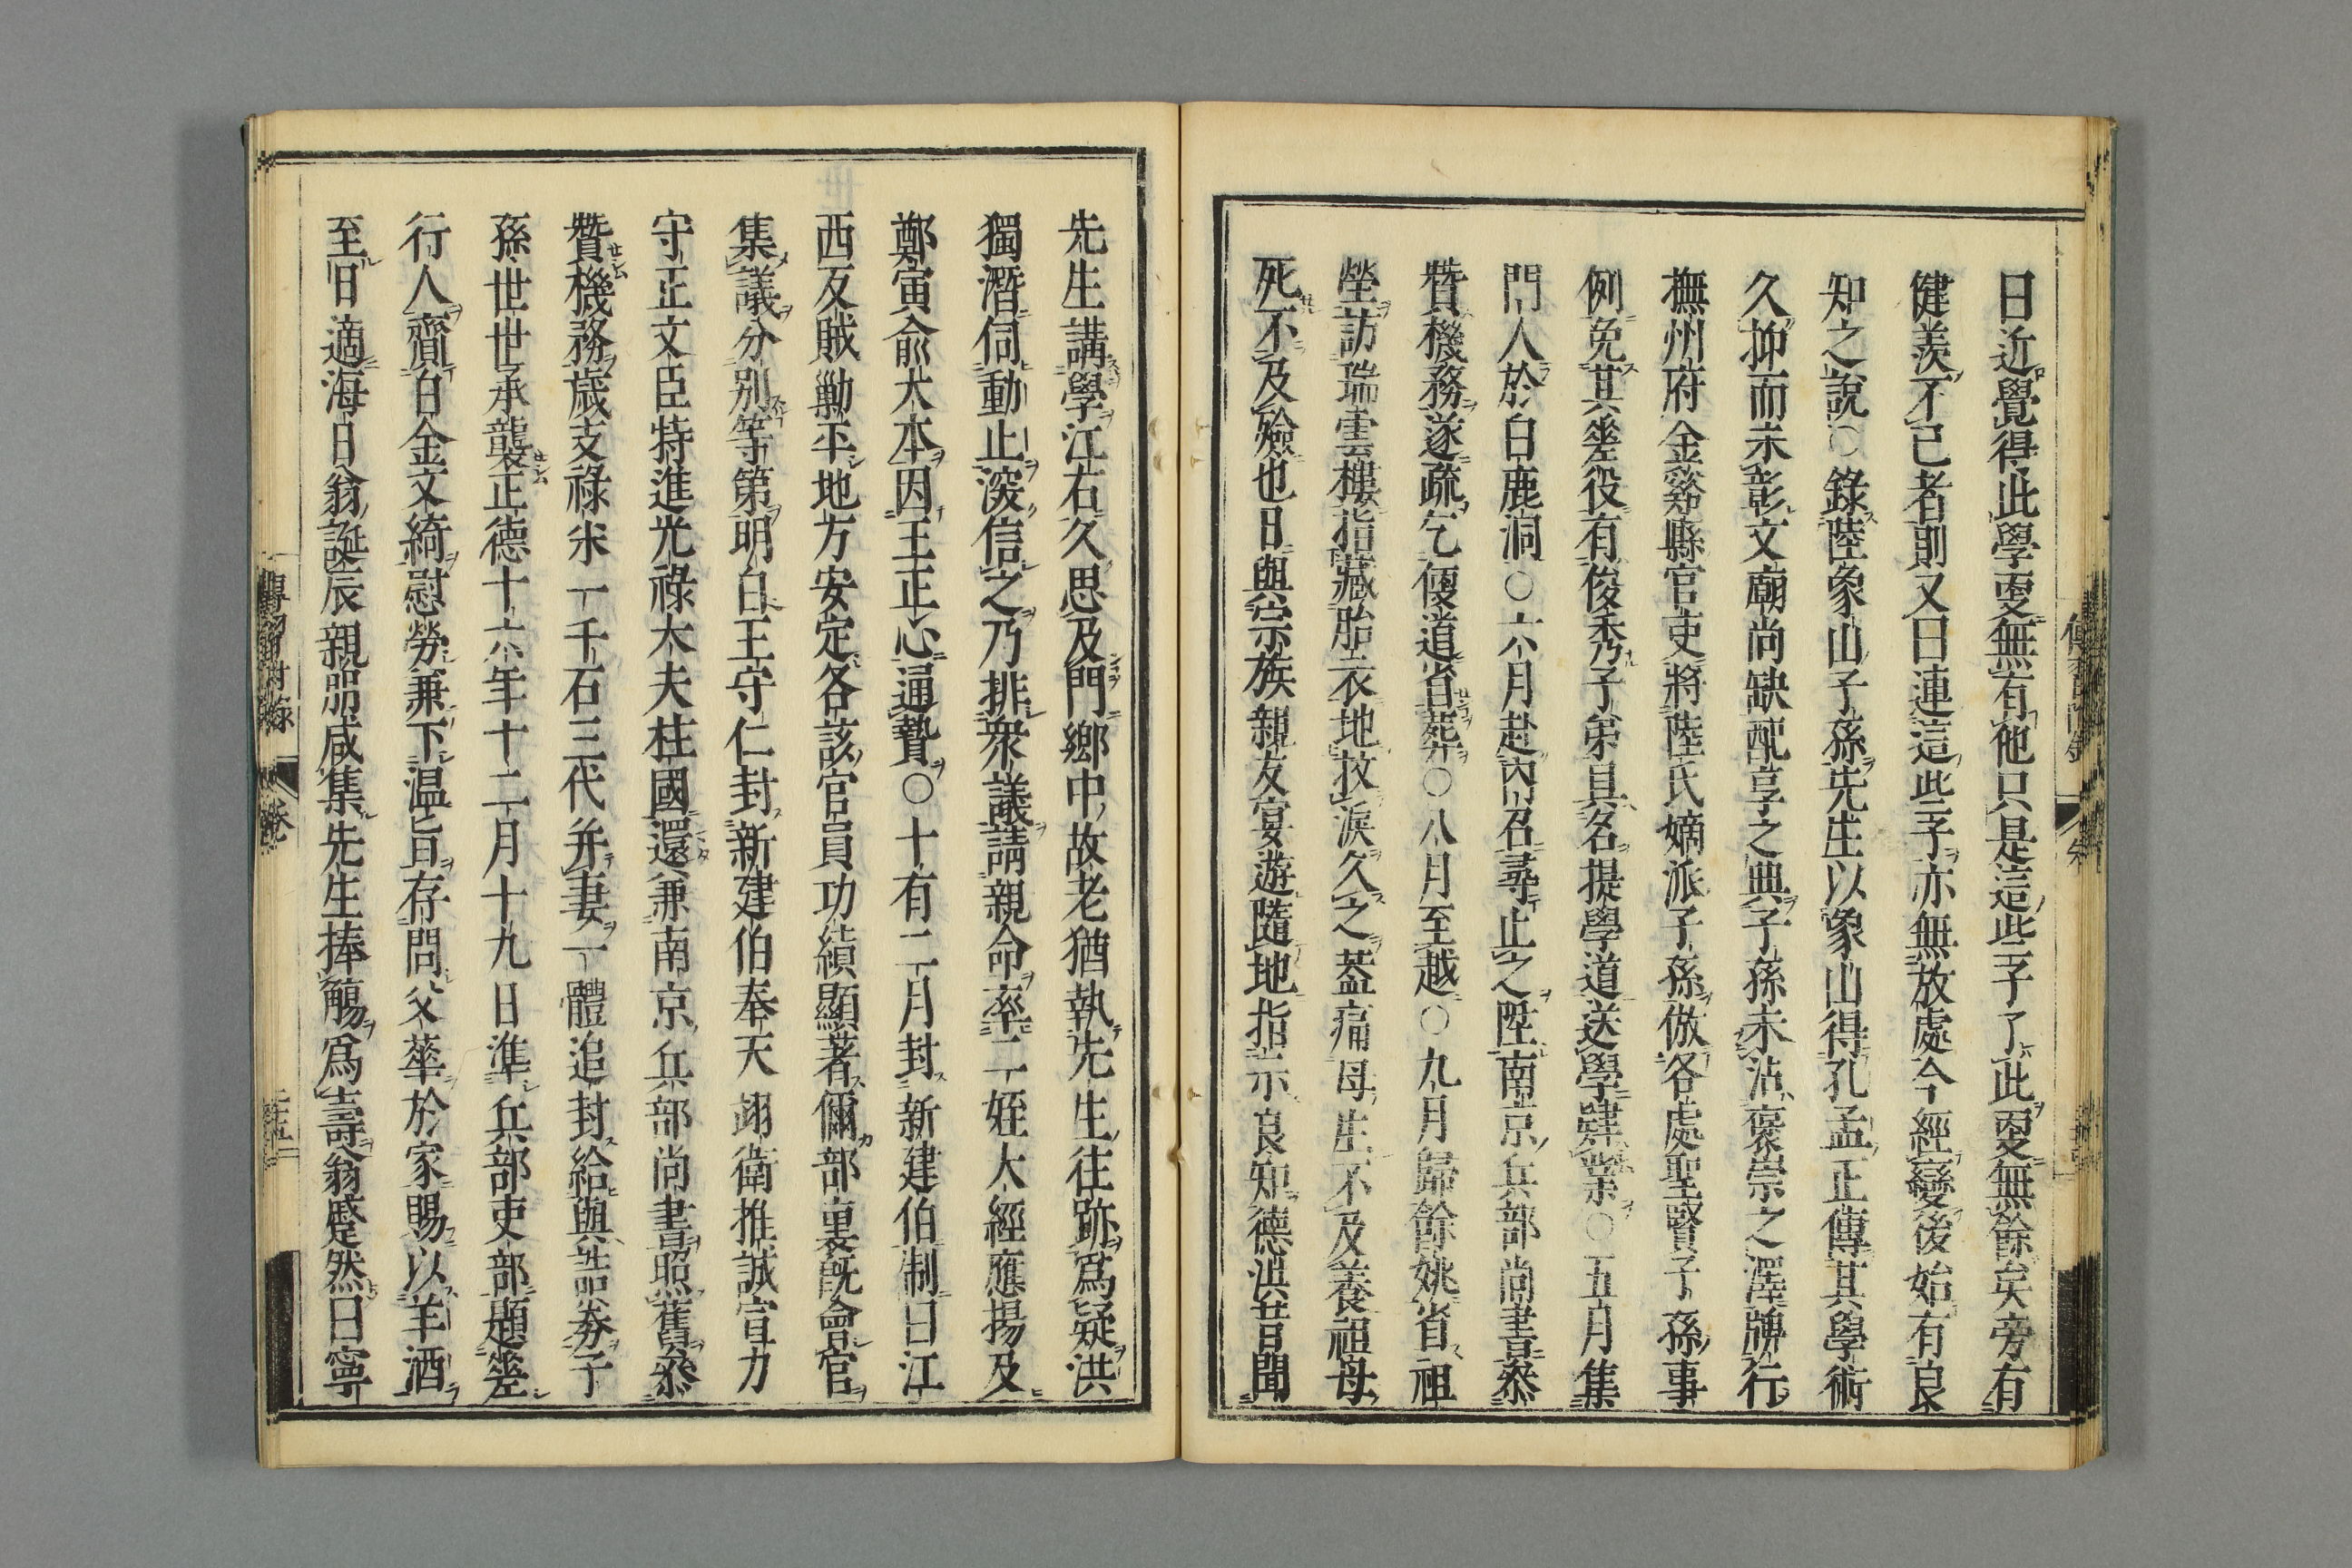 日近覺得此學更無有他只是這些子了此更無餘矣旁有
健羨不已者則又曰連這些子亦無放處今經變後始有良
知之說○錄陸象山子孫先生以象山得孔孟正傳其學術
久抑而未彰文廟尚缺配享之典子孫未沾褒崇之澤牌行
撫州府金谿縣官吏將陸氏嫡派子孫倣各處聖賢子孫事
例免其差役有俊秀子弟具名提學道送學肄業○五月集
門人於白鹿洞○六月赴內召尋止之陞南京兵部尚書叅
贊機務遂疏乞便道省葬○八月至越○九月歸餘姚省祖
塋訪瑞雲樓指藏胎衣地抆淚久之葢痛母生不及養祖母
死不及殮也日與宗族親友宴遊隨地指示良知德洪昔聞
先生講學江右久思及門鄉中故老猶執先生往跡爲疑洪
獨潛伺動止深信之乃排衆議請親命率二姪大經應揚及
鄭寅俞大本因王正心通贄○十有二月封新建伯制曰江
西反賊勦平地方安定各該官員功績顯著爾部裏既會官
集議分別等第明白王守仁封新建伯奉天翊衛推誠宣力
守正文臣特進光祿大夫柱國還兼南京兵部尚書照舊叅
贊機務歲支祿米一千石三代并妻一體追封給與誥券子
孫世世承襲正德十六年十二月十九日準兵部吏部題差
行人齎白金文綺慰勞兼下温旨存問父華於家賜以羊酒
至日適海日翁誕辰親朋咸集先生捧觴爲壽翁蹙然曰寧
傳習附錄
卷